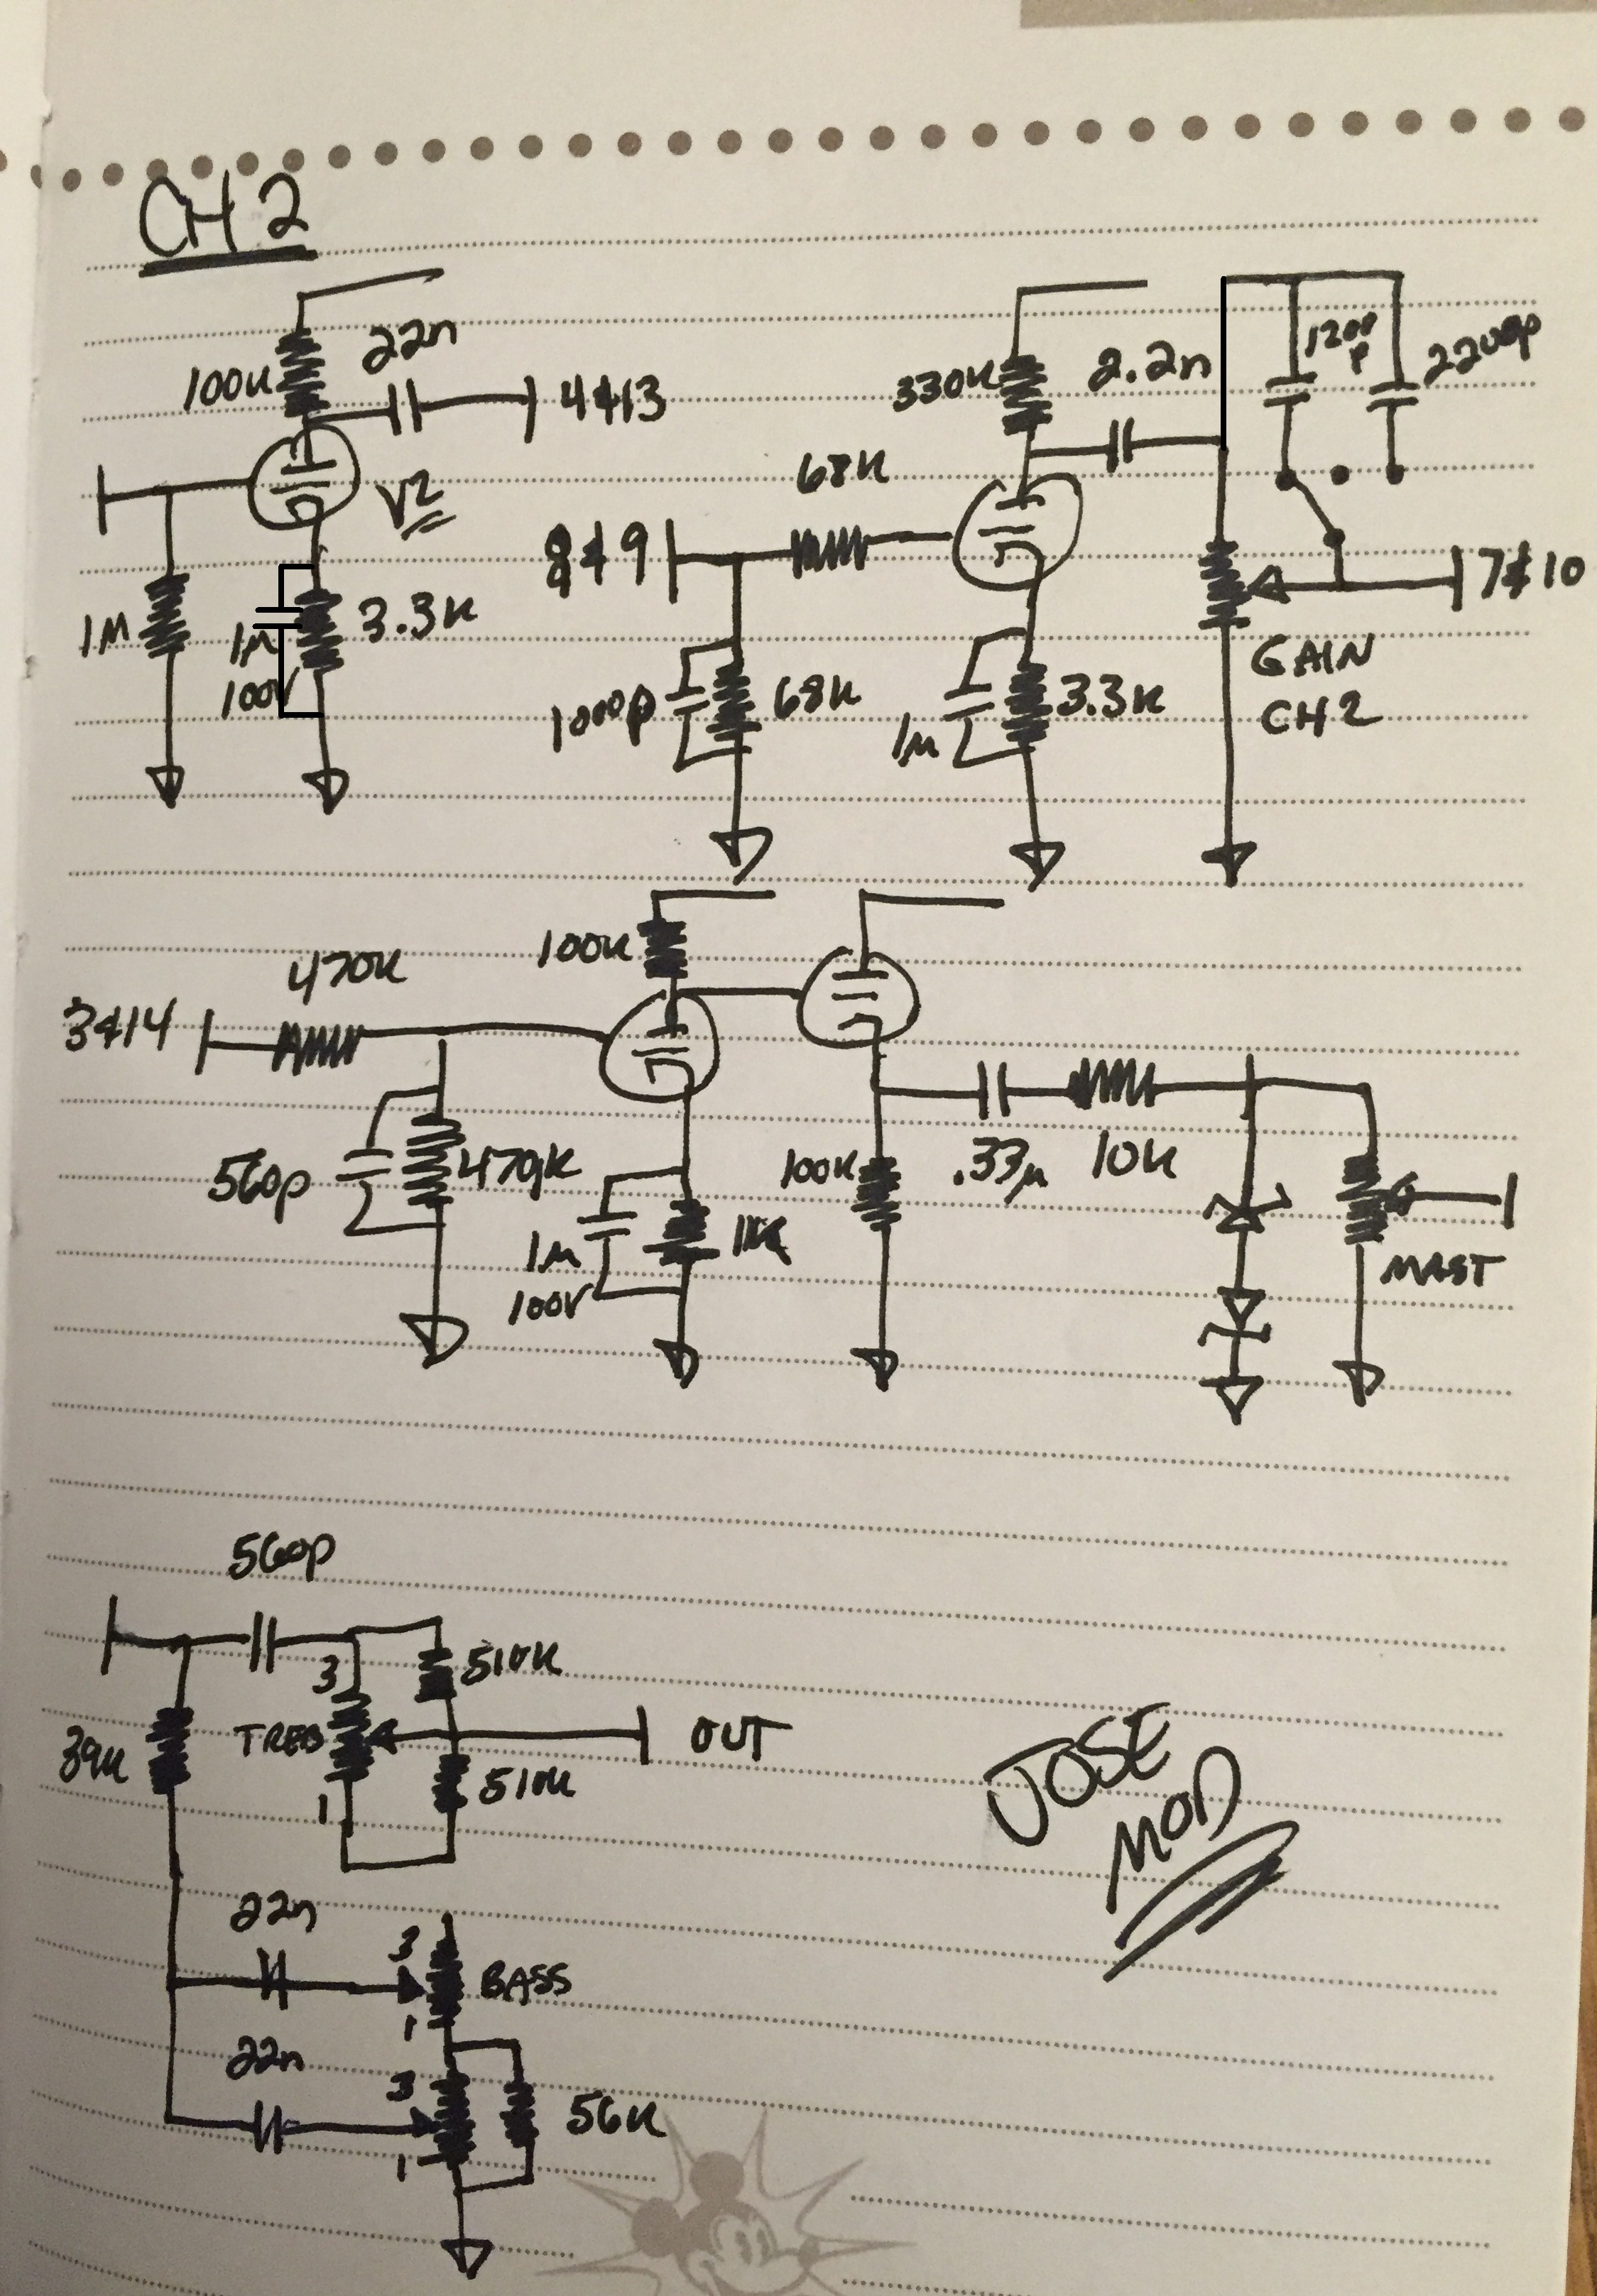 CH 2
22n
100K
4&13
V2
1M
1µ
100V
3.3K
330K
2.2n
1200p
2200p
68K
8&9
7&10
1000p
68K
1µ
3.3K
GAIN
CH2
100K
470K
3&14
560p
470K
1µ
100V
100K
.33µ
10K
MAST
560p
3
510K
39K
TREB
OUT
1
510K
JOSE
MOD
22n
3
BASS
1
22n
3
56K
1